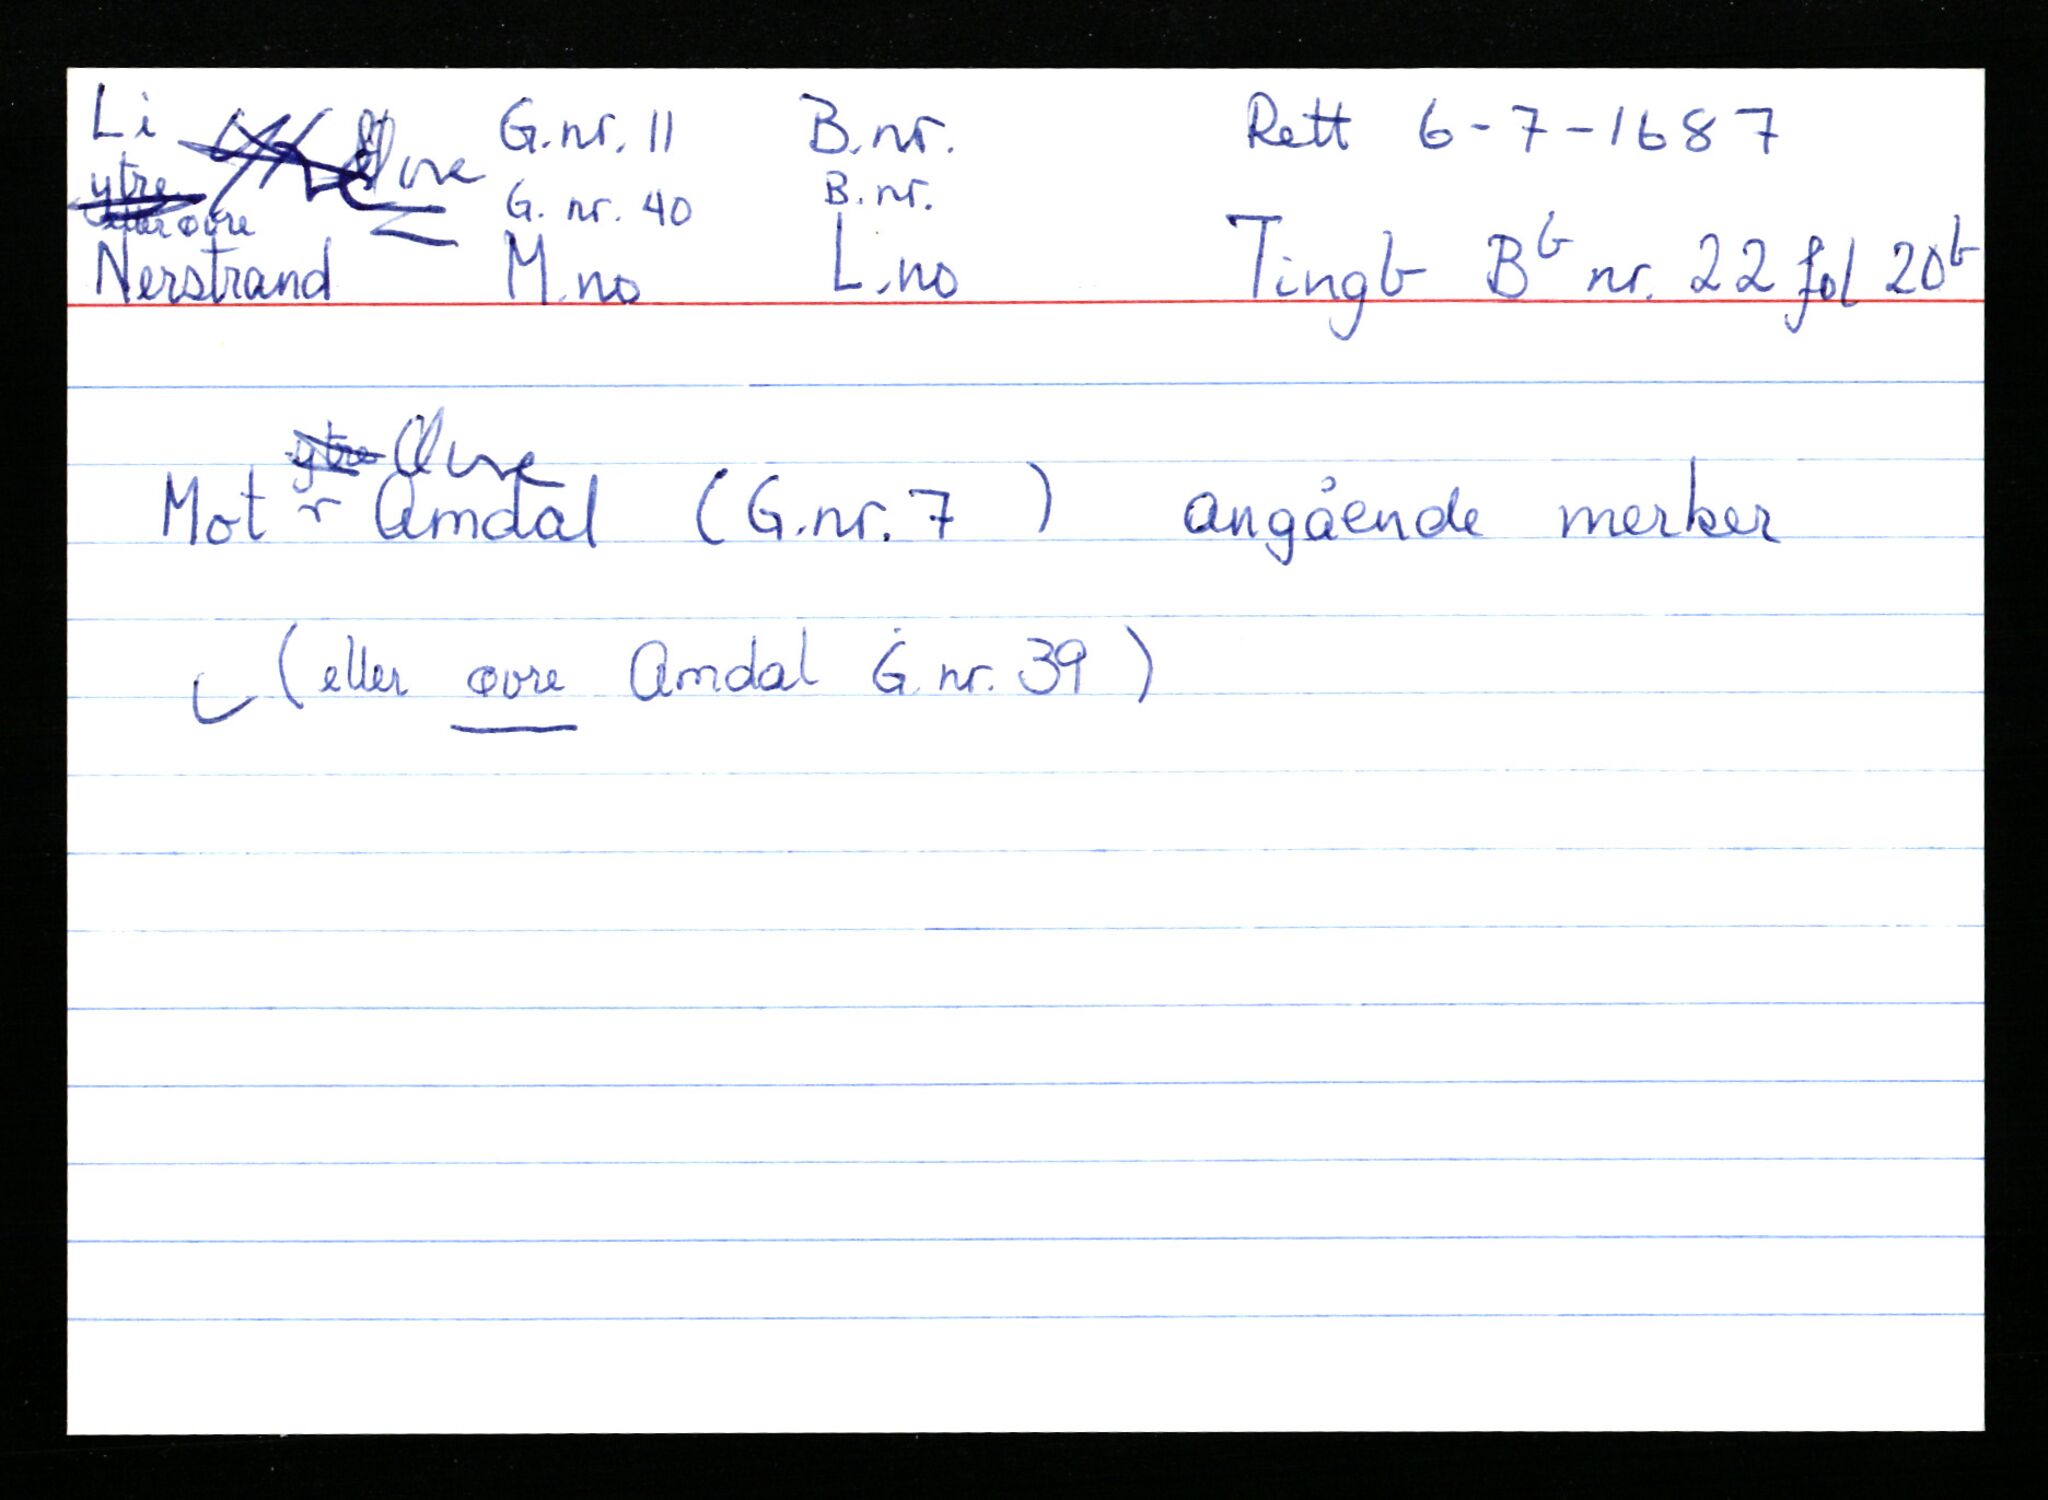 Li Øvre G.nr. 11 B.nr. Rett 6-7-1687
ytre G. nr. 40 B.nr.
eller øvre
Nerstrand M.no L.no Tingb Bb nr. 22 fol 20b
ytre Øvre
Mot Amdal (G.nr. 7 ) angående merker
(eller øvre Amdal G.nr. 39)